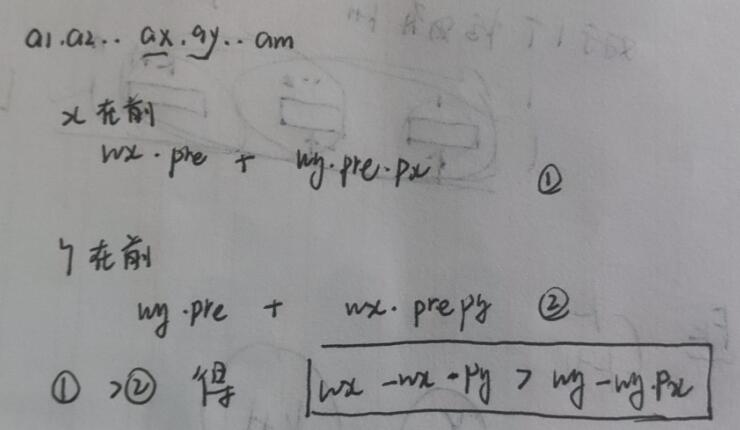 a1.a2.. ax.ay.. am
x在前
wx.pre + wy.pre.px ①
y在前
wy.pre + wx.prepy ②
① >② 得 wx-wx-py > wy-wy.px